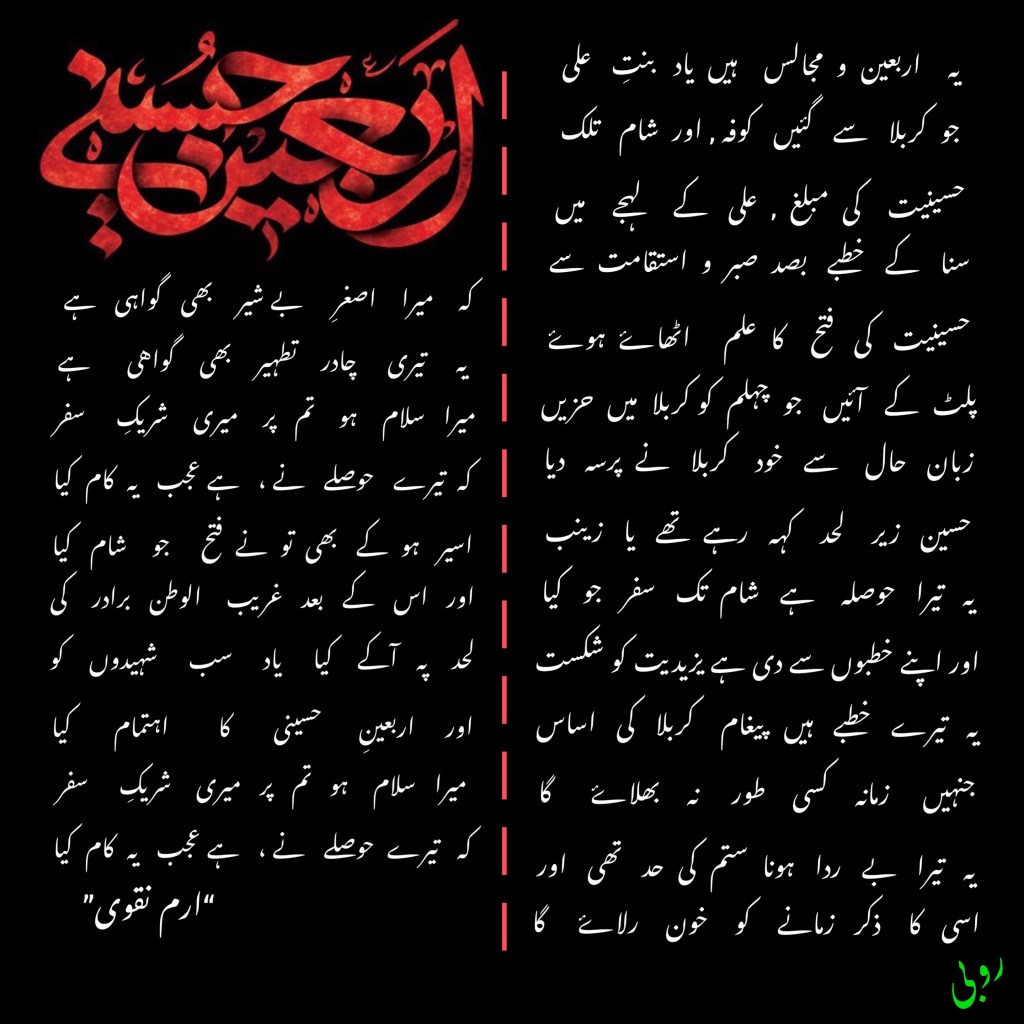 اربعین حسینی
یہ اربعین و مجالس ہیں یاد بنتِ علی
جو کربلا سے گئیں کوفہ , اور شام تلک
حسینیت کی مبلغ , علی کے لہجے میں
سنا کے خطبے بصد صبر و استقامت سے
حسینیت کی فتح کا علم اٹھائے ہوئے
پلٹ کے آئیں جو چہلم کو کربلا میں حزیں
زبان حال سے خود کربلا نے پرسہ دیا
حسین زیر لحد کہہ رہے تھے یا زینب
یہ تیرا حوصلہ ہے شام تک سفر جو کیا
اور اپنے خطبوں سے دی ہے یزیدیت کو شکست
یہ تیرے خطبے ہیں پیغام کربلا کی اساس
جنہیں زمانہ کسی طور نہ بھلائے گا
یہ تیرا بے ردا ہونا ستم کی حد تھی اور
اسی کا ذکر زمانے کو خون رلائے گا
کہ میرا اصغرِ بے شیر بھی گواہی ہے
یہ تیری چادر تطہیر بھی گواھی ہے
میرا سلام ہو تم پر میری شریکِ سفر
کہ تیرے حوصلے نے، ہے عجب یہ کام کیا
اسیر ہو کے بھی تو نے فتح جو شام کیا
اور اس کے بعد غریب الوطن برادر کی
لحد پہ آکے کیا یاد سب شہیدوں کو
اور اربعینِ حسینی کا اہتمام کیا
میرا سلام ہو تم پر میری شریکِ سفر
کہ تیرے حوصلے نے، ہے عجب یہ کام کیا
“ارم نقوی”
روبی